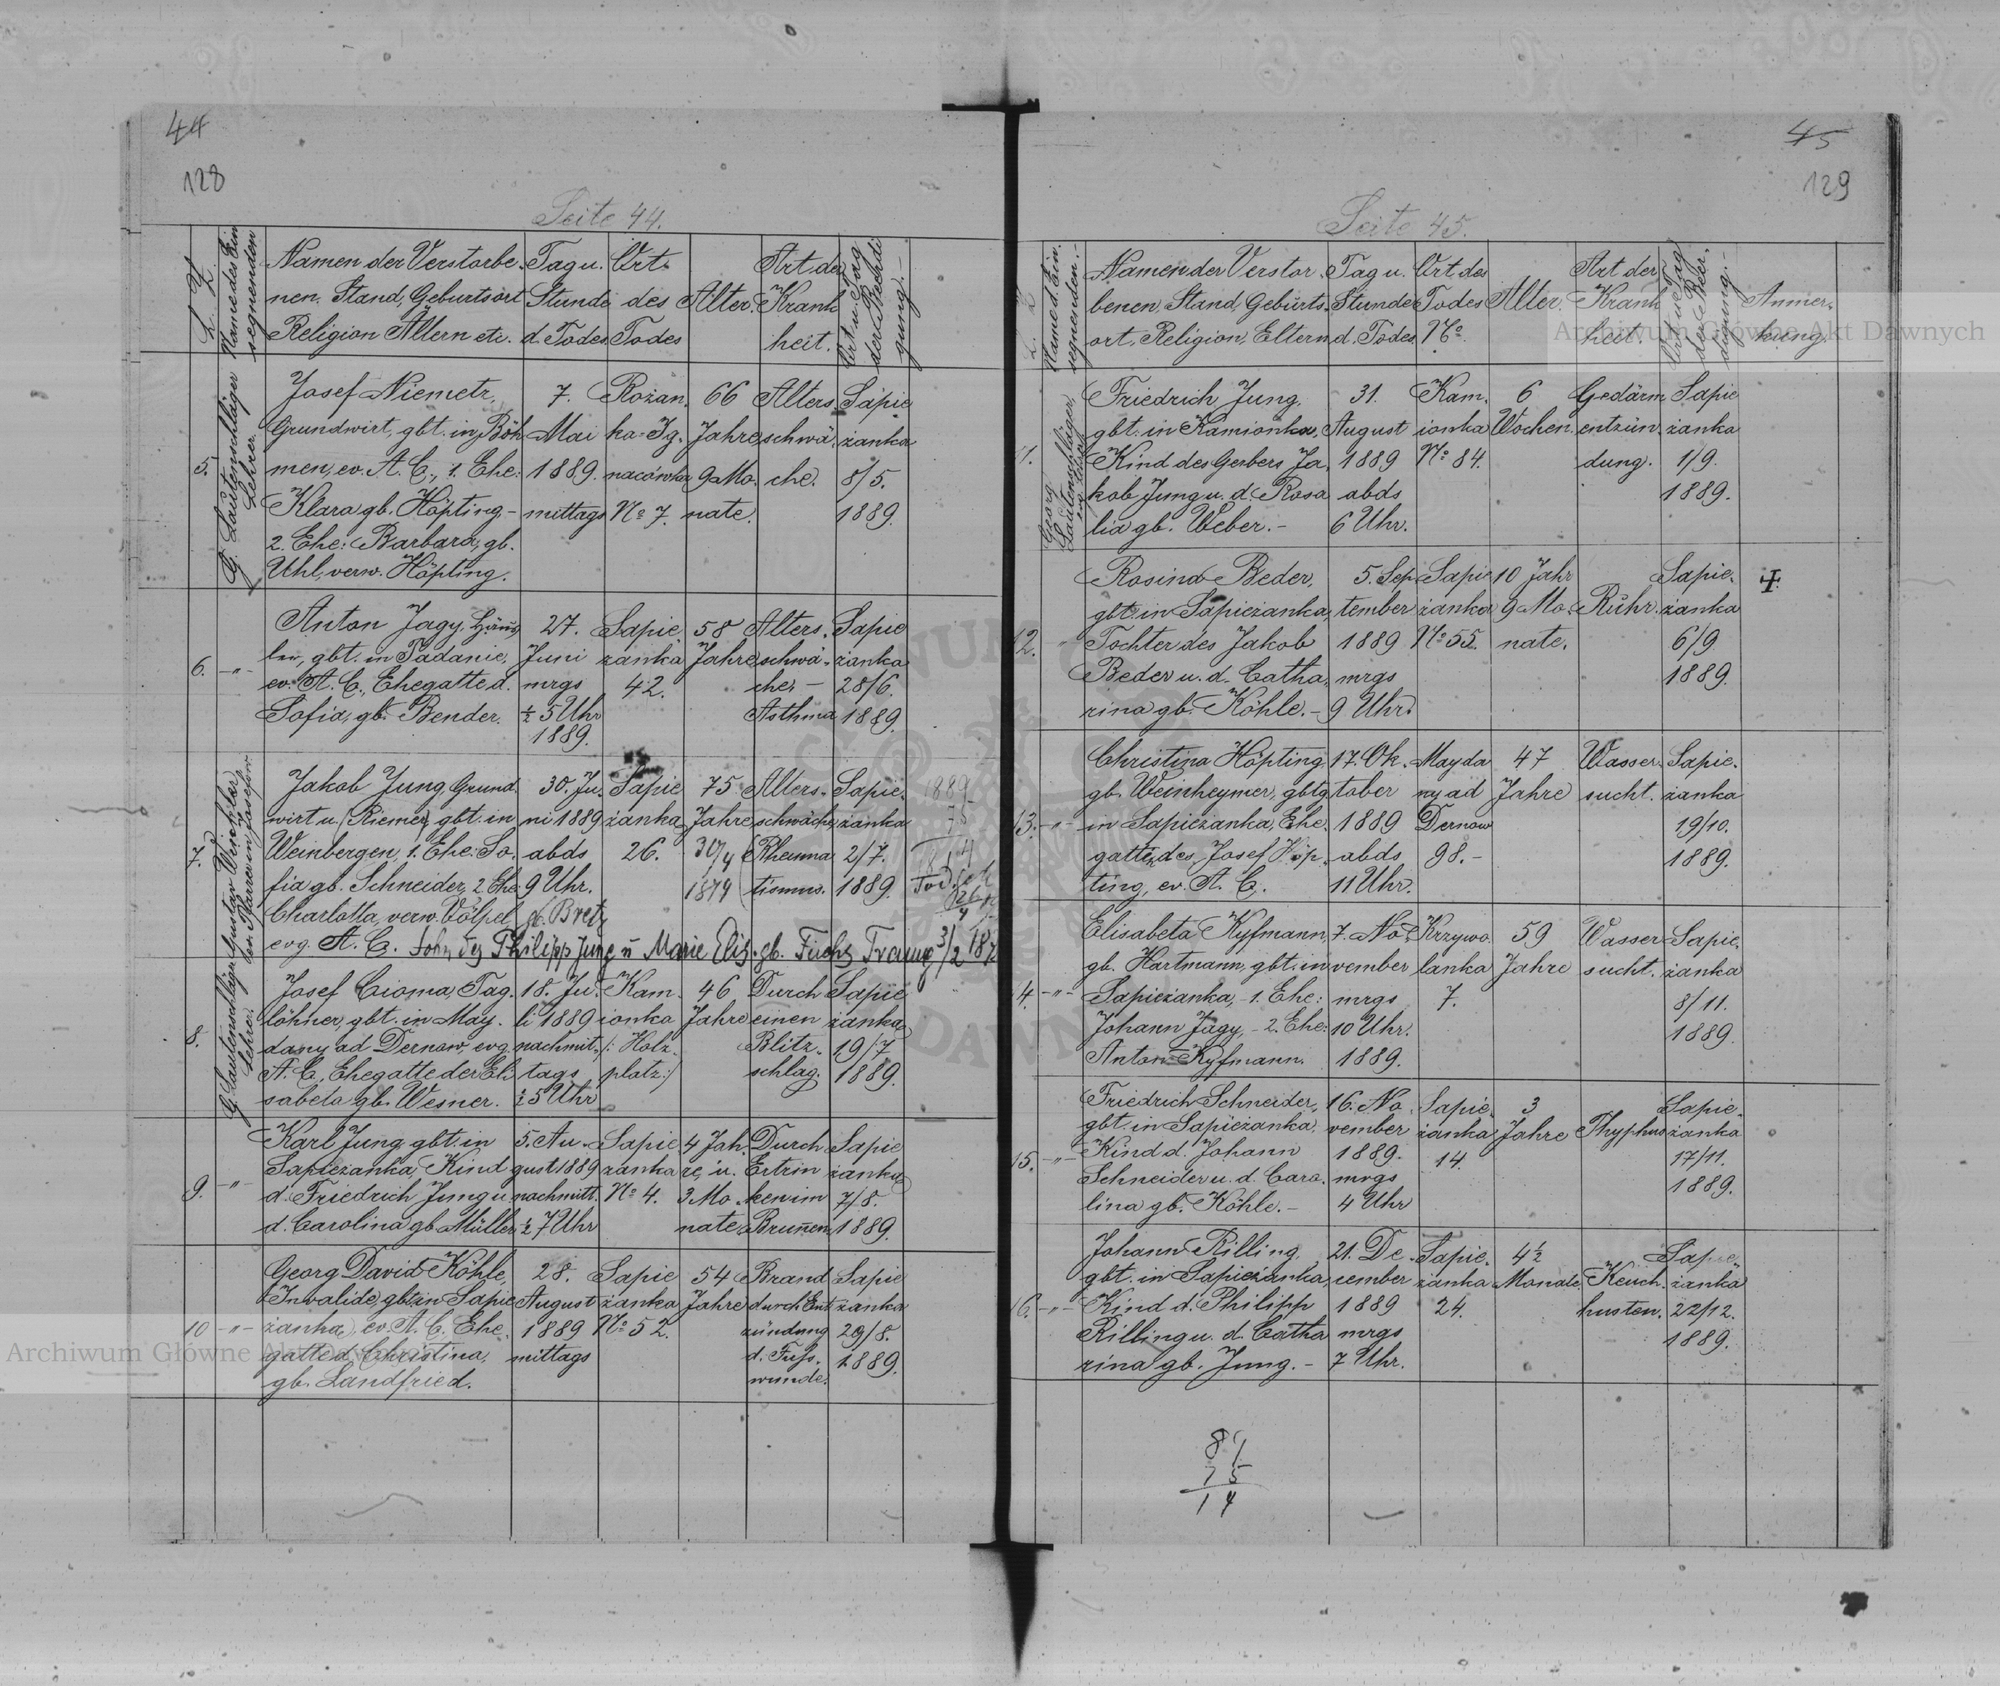 44
128
Seite 44.
L. Z.
Name des Ein
segnenden
Namen der Verstorbe-
nen, Stand, Geburtsort
Religion Ältern etc.
Tag u.
Stunde
d. Todes
Ort
des
Todes
Alter.
Art der
Krank
heit.
Ort u. Tag
der Beerdi
gung.-
5.
G. Lautenschläger
Lehrer.
Josef Niemetz,
Grundwirt, gbt. in Böh
men, ev. A. C., 1. Ehe:
Klara gb. Höpting.-
2. Ehe: Barbara, gb.
Uhl, verw. Höpting.
7.
Mai
1889.
mittags
Rożan.
ka-Ig.
nacówka
No 7.
66
Jahre
9 Mo.
nate.
Alters
schwä.
che.
Sapie
żanka
8/5.
1889.
6.
-"-
Anton Jagy, Häus
ler, gbt. in Tadanie,
ev. A. C., Ehegatte d.
Sofia, gb. Bender.
27.
Juni
mrgs
½ 5 Uhr
1889.
Sapie
żanka
42.
58
Jahre
Alters.
schwä-
che, -
Asthma
Sapie
żanka
28/6.
1889.
7.
Gustav Weichler
ev. Pfarrer in Josefow
Jakob Jung, Grund
wirt u. Riemer, gbt. in
Weinbergen, 1. Ehe: So.
fia gb. Schneider, 2. Ehe
Charlotta, verw. Völpel, gb. Bretz
evg. A. C. Sohn des Philipp Jung u Marie Elis. gb. Fuchs Trauung 3/2 187
30. Ju
ni 1889
abds
9 Uhr.
Sapie
żanka
26.
75
Jahre
30/4
1874
Alters-
schwäche,
Rheuma
tismus.
Sapie.
żanka
2/7.
1889.
1889
75
1814
8.
G. Lautenschläger
Lehrer.
Josef Cioma, Tag.
löhner, gbt. in May.
dany ad Dernow, evg
A. C., Ehegatte der Eli
sabeta gb. Wesner.
18. Ju
li 1889
nachmit.
tags
½ 5 Uhr
Kam.
ionka
/: Holz
platz :/
46
Jahre
Durch
einen
Blitz-
schlag.
Sapie
żanka
19/7
1889.
9.
-"-
Karl Jung gbt. in
Sapieżanka, Kind
d. Friedrich Jung u
d. Carolina gb. Müller
5. Au-
gust 1889
nachmitt.
½ 7 Uhr
Sapie
żanka
No 4.
4 Jah.
re, u.
3 Mo.
nate
Durch
Ertrin
ken im
Brunen
Sapie
żanka
7/8.
1889.
10
-"-
Georg David Köhle,
Invalide, gbt. in Sapie
żanka, ev. A. C. Ehe.
gatte d. Christina,
gb. Landfried.
28.
August
1889
mittags
Sapie
żanka
No 52.
54
Jahre
Brand
durch Ent
zündung
d. Fuss.
wunde.
Sapie
żanka
29/8.
1889.
45
129
Seite 45.
L. Z.
Name d. Ein.
segnenden.-
Namen der Verstor.
benen, Stand, Geburts.
ort, Religion, Eltern
Tag u.
Stunde
d. Todes
Ort des
Todes
No.
Alter.
Art der
Krank
heit.
Ort u. Tag
der Beer.
digung.-
Anmer.
kung.
11.
Georg
Lautenschläger,
Friedrich Jung,
gbt. in Kamionka,
Kind des Gerbers Ja.
kob Jung u. d. Rosa
lia gb. Weber.-
31.
August
1889
abds
6 Uhr.
Kam.
ionka
No 84.
6
Wochen.
Gedärm
entzün.
dung.
Sapie
żanka
1/9.
1889.
12.
"
Rosina Beder,
gbt. in Sapieżanka,
Tochter des Jakob
Beder u. d. Catha.
rina gb. Köhle.-
5. Sep
tember
1889
mrgs
9 Uhr.
Sapie
żanka
No 55.
10 Jahr
9 Mo.
nate.
Ruhr.
Sapie.
żanka
6/9.
1889.
13.
-"-
Christina Höpting
gb. Weinheymer, gbtg
in Sapieżanka, Ehe.
gattin des Josef Höp.
ting, ev. A. C.
17. Ok.
tober
1889
abds
11 Uhr.
Mayda
ny ad
Dernow
98.-
47
Jahre
Wasser
sucht.
Sapie.
żanka
19/10.
1889.
14.
-"-
Elisabeta Kyfmann,
gb. Hartmann, gbt. in
Sapieżanka, - 1. Ehe:
Johann Jagy, - 2. Ehe:
Anton Kyfmann.
7. No
vember
mrgs
10 Uhr.
1889.
Krzywo.
lanka
7.
59
Jahre
Wasser
sucht.
Sapie.
żanka
8/11.
1889.
15.
-"-
Friedrich Schneider,
gbt. in Sapieżanka,
Kind d. Johann
Schneider u. d. Caro.
lina gb. Köhle.-
16. No
vember
1889.
mrgs
4 Uhr
Sapie.
żanka
14.
3
Jahre
Thyphus
Sapie.
żanka
17/11.
1889.
16.
-"-
Johann Rilling,
gbt. in Sapieżanka,
Kind d. Philipp
Rilling u. d. Catha
rina gb. Jung.-
21. De.
cember
1889
mrgs
7 Uhr.
Sapie.
żanka
24.
4½
Monate
Keuch.
husten.
Sapie.
żanka
22/12.
1889.
89
75
14
Archiwum Główne Akt Dawnych
Archiwum Główne Akt Dawnych